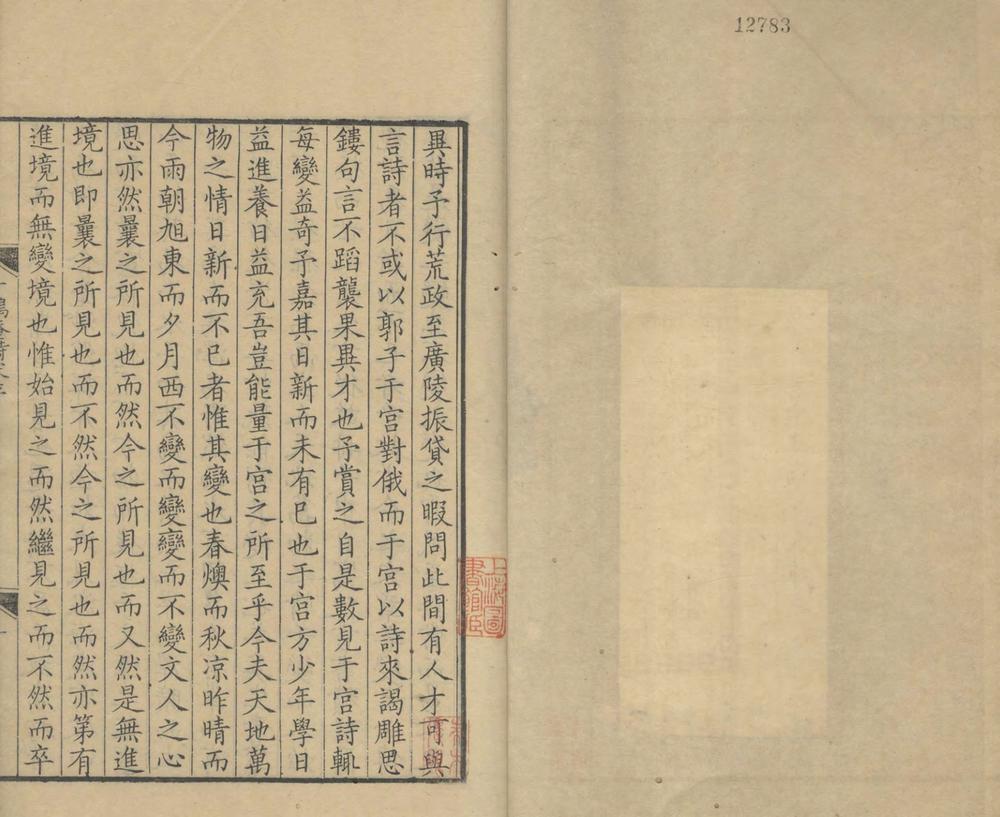 12783
異時予行荒政至廣陵振貸之暇問此間有人才可與
言詩者不或以郭子于宮對俄而于宮以詩來謁雕思
鏤句言不蹈襲果異才也予賞之自是數見于宮詩輒
每變益奇予嘉其日新而未有已也于宮方少年學日
益進養日益充吾豈能量于宮之所至乎今夫天地萬
物之情日新而不已者惟其變也春燠而秋凉昨晴而
今雨朝旭東而夕月西不變而變變而不變文人之心
思亦然曩之所見也而然今之所見也而又然是無進
境也即曩之所見也而不然今之所見也而然亦第有
進境而無變境也惟始見之而然繼見之而不然而卒
上海圖
書館藏